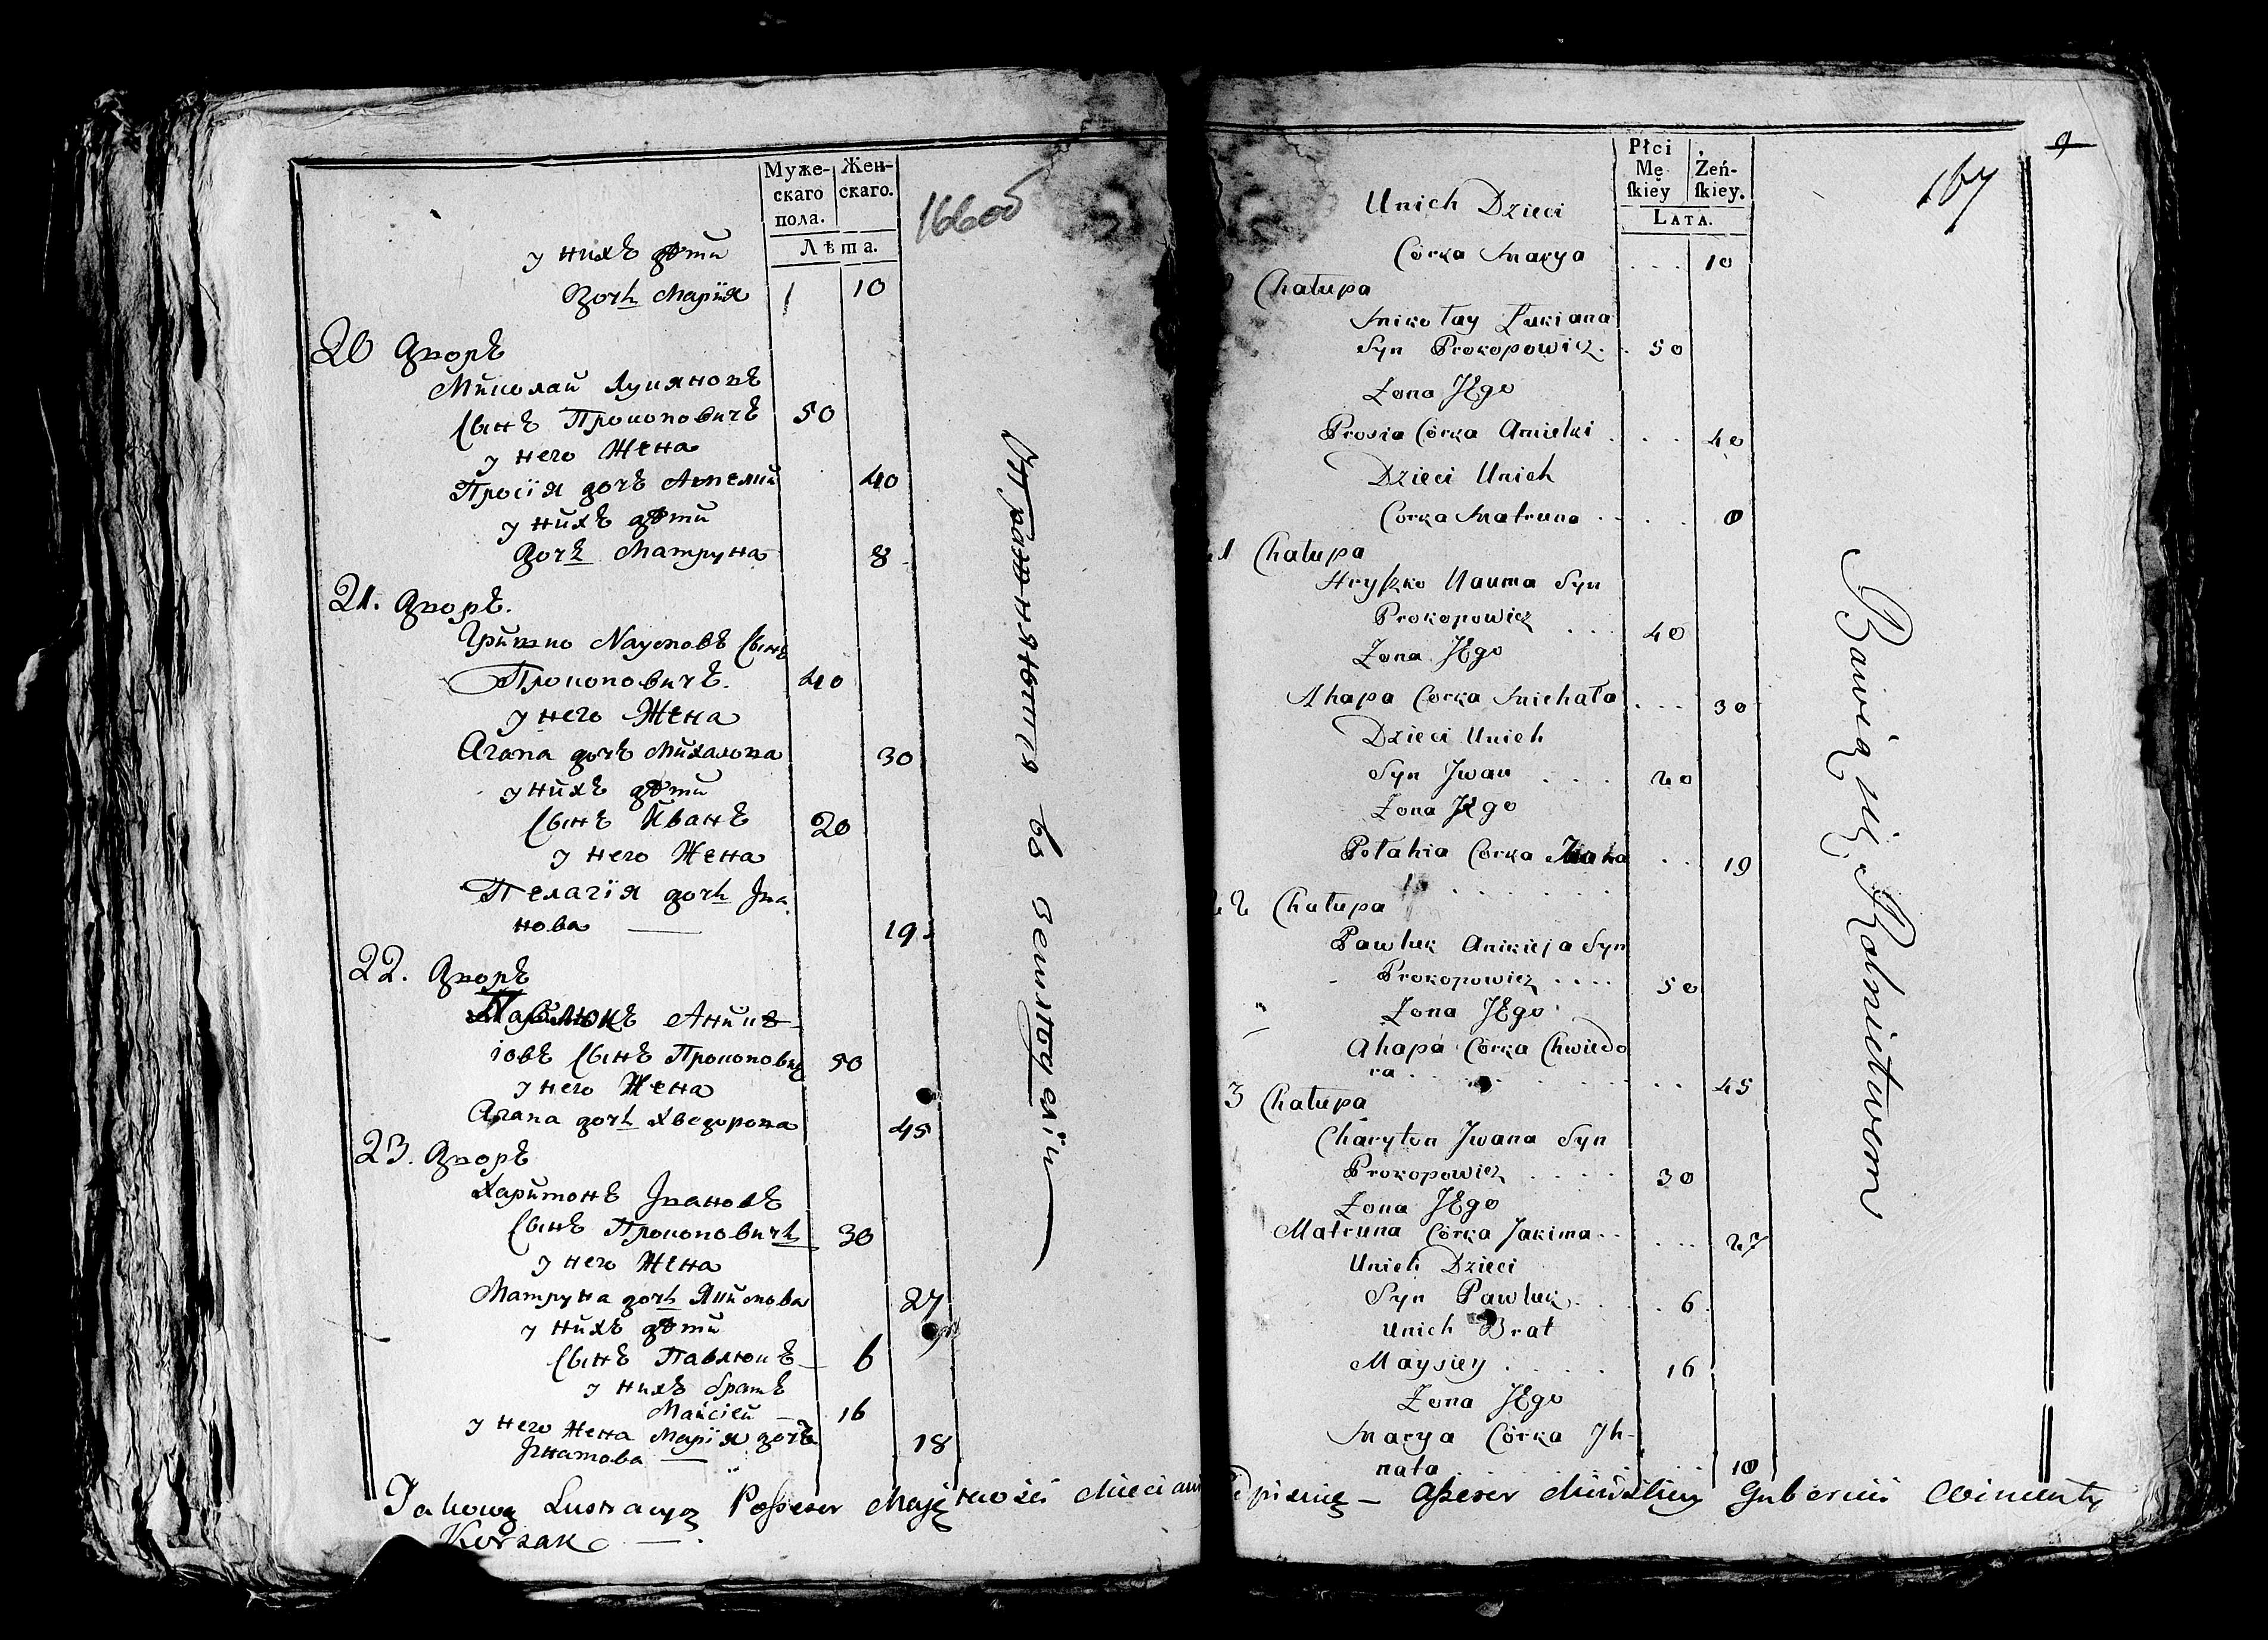 Муже- Жен-
скаго скаго.
пола.
Лѣта.
166об
у нихъ дѣти
дочь Марія 1 10
20 дворъ
Миколай Лукяновъ
сынъ Прокоповичъ 50
у него Жена
Просія дочь 40
у нихъ дѣти
дочь Матруна 8
21. дворъ.
Гришко Наумовъ сынъ
Прокоповичъ. 40
у него Жена
Агапа дочь Михалова 30
у нихъ дѣти
сынъ Иванъ 20
у него Жена
Пелагія дочь Ива
нова 19
22. дворъ
Павлюкъ Аникѣ
іовъ сынъ Прокопович 50
у него Жена
Агапа дочь Хведорова 45
23. дворъ
Харитонъ Ивановъ
сынъ Прокоповичъ 30
у него Жена
Матруна дочь Якимова 27
у нихъ дѣти
сынъ Павлюкъ 6
у нихъ братъ
Майсій 16
у него Жена Марія дочь
Игнатова 18
Упражняются въ Земледелїи
Płci
Mę- Żeń-
ſkiey ſkiey.
LATA.
9
167
Unich Dzieci
Córka Marya . . . 10
Chałupa
Mikołay Łukiana
Syn Prokopowicz . . 50
Żona JEgo
Prosia Córka Amielki . . . 40
Dzieci Unich
Corka Matruna . . . 8
21 Chałupa
Hryſzko Nauma Syn
Prokopowicz . . . 40
Żona JEgo
Ahapa Corka Michała . . . 30
Dzieci Unich
Syn Jwan . . . 20
Żona JEgo
Pełahia Corka Jwana . . 19
22 Chałupa
Pawluk Anikieja Syn
Prokopowicz . . . . 50
Żona JEgo
Ahapa Córka Chwiedo
ra . . . 45
3 Chałupa
Charyton Jwana Syn
Prokopowicz . . . . 30
Żona JEgo
Matruna Córka Jakima . . . . . 27
Unich Dzieci
Syn Pawluk . . . 6
Unich Brat
Maysiey . . . . 16
Żona JEgo
Marya Córka Jh-
nata . . . 18
Bawią się Rolnictwem
Takową Lustracyą Poſsesor Maiętnosci podpisuię — Aſsesor Minſkiey Gubernii Wincenty
Korzak